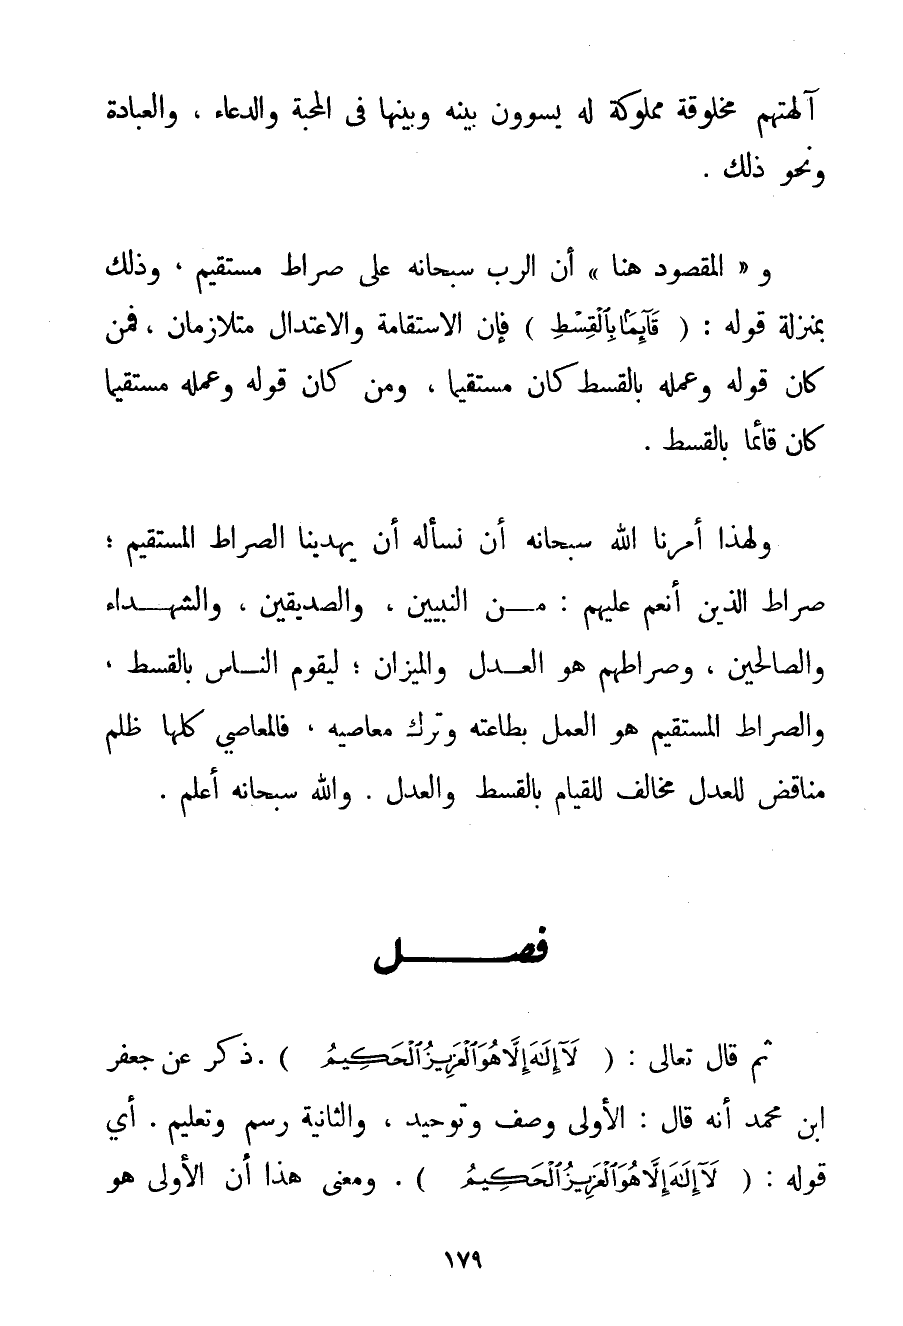 آلهتهم مخلوقة مملوكة له يسوون بينه وبينها فى المحبة والدعاء ، والعبادة
ونحو ذلك .
و « المقصود هنا » أن الرب سبحانه على صراط مستقيم ، وذلك
بمنزلة قوله : ( قَآئِمًۢا بِٱلْقِسْطِ ) فإن الاستقامة والاعتدال متلازمان ، فمن
كان قوله وعمله بالقسط كان مستقيما ، ومن كان قوله وعمله مستقيما
كان قائما بالقسط .
ولهذا أمرنا الله سبحانه أن نسأله أن يهدينا الصراط المستقيم ؛
صراط الذين أنعم عليهم : مـن النبيين ، والصديقين ، والشهـداء
والصالحين ، وصراطهم هو العـدل والميزان ؛ ليقوم النـاس بالقسط ،
والصراط المستقيم هو العمل بطاعته وترك معاصيه ، فالمعاصي كلها ظلم
مناقض للعدل مخالف للقيام بالقسط والعدل . والله سبحانه أعلم .
فصـــــل
ثم قال تعالى : ( لَآ إِلَٰهَ إِلَّا هُوَ ٱلْعَزِيزُ ٱلْحَكِيمُ ) . ذكر عن جعفر
ابن محمد أنه قال : الأولى وصف وتوحيد ، والثانية رسم وتعليم . أي
قوله : ( لَآ إِلَٰهَ إِلَّا هُوَ ٱلْعَزِيزُ ٱلْحَكِيمُ ) . ومعنى هذا أن الأولى هو
١٧٩